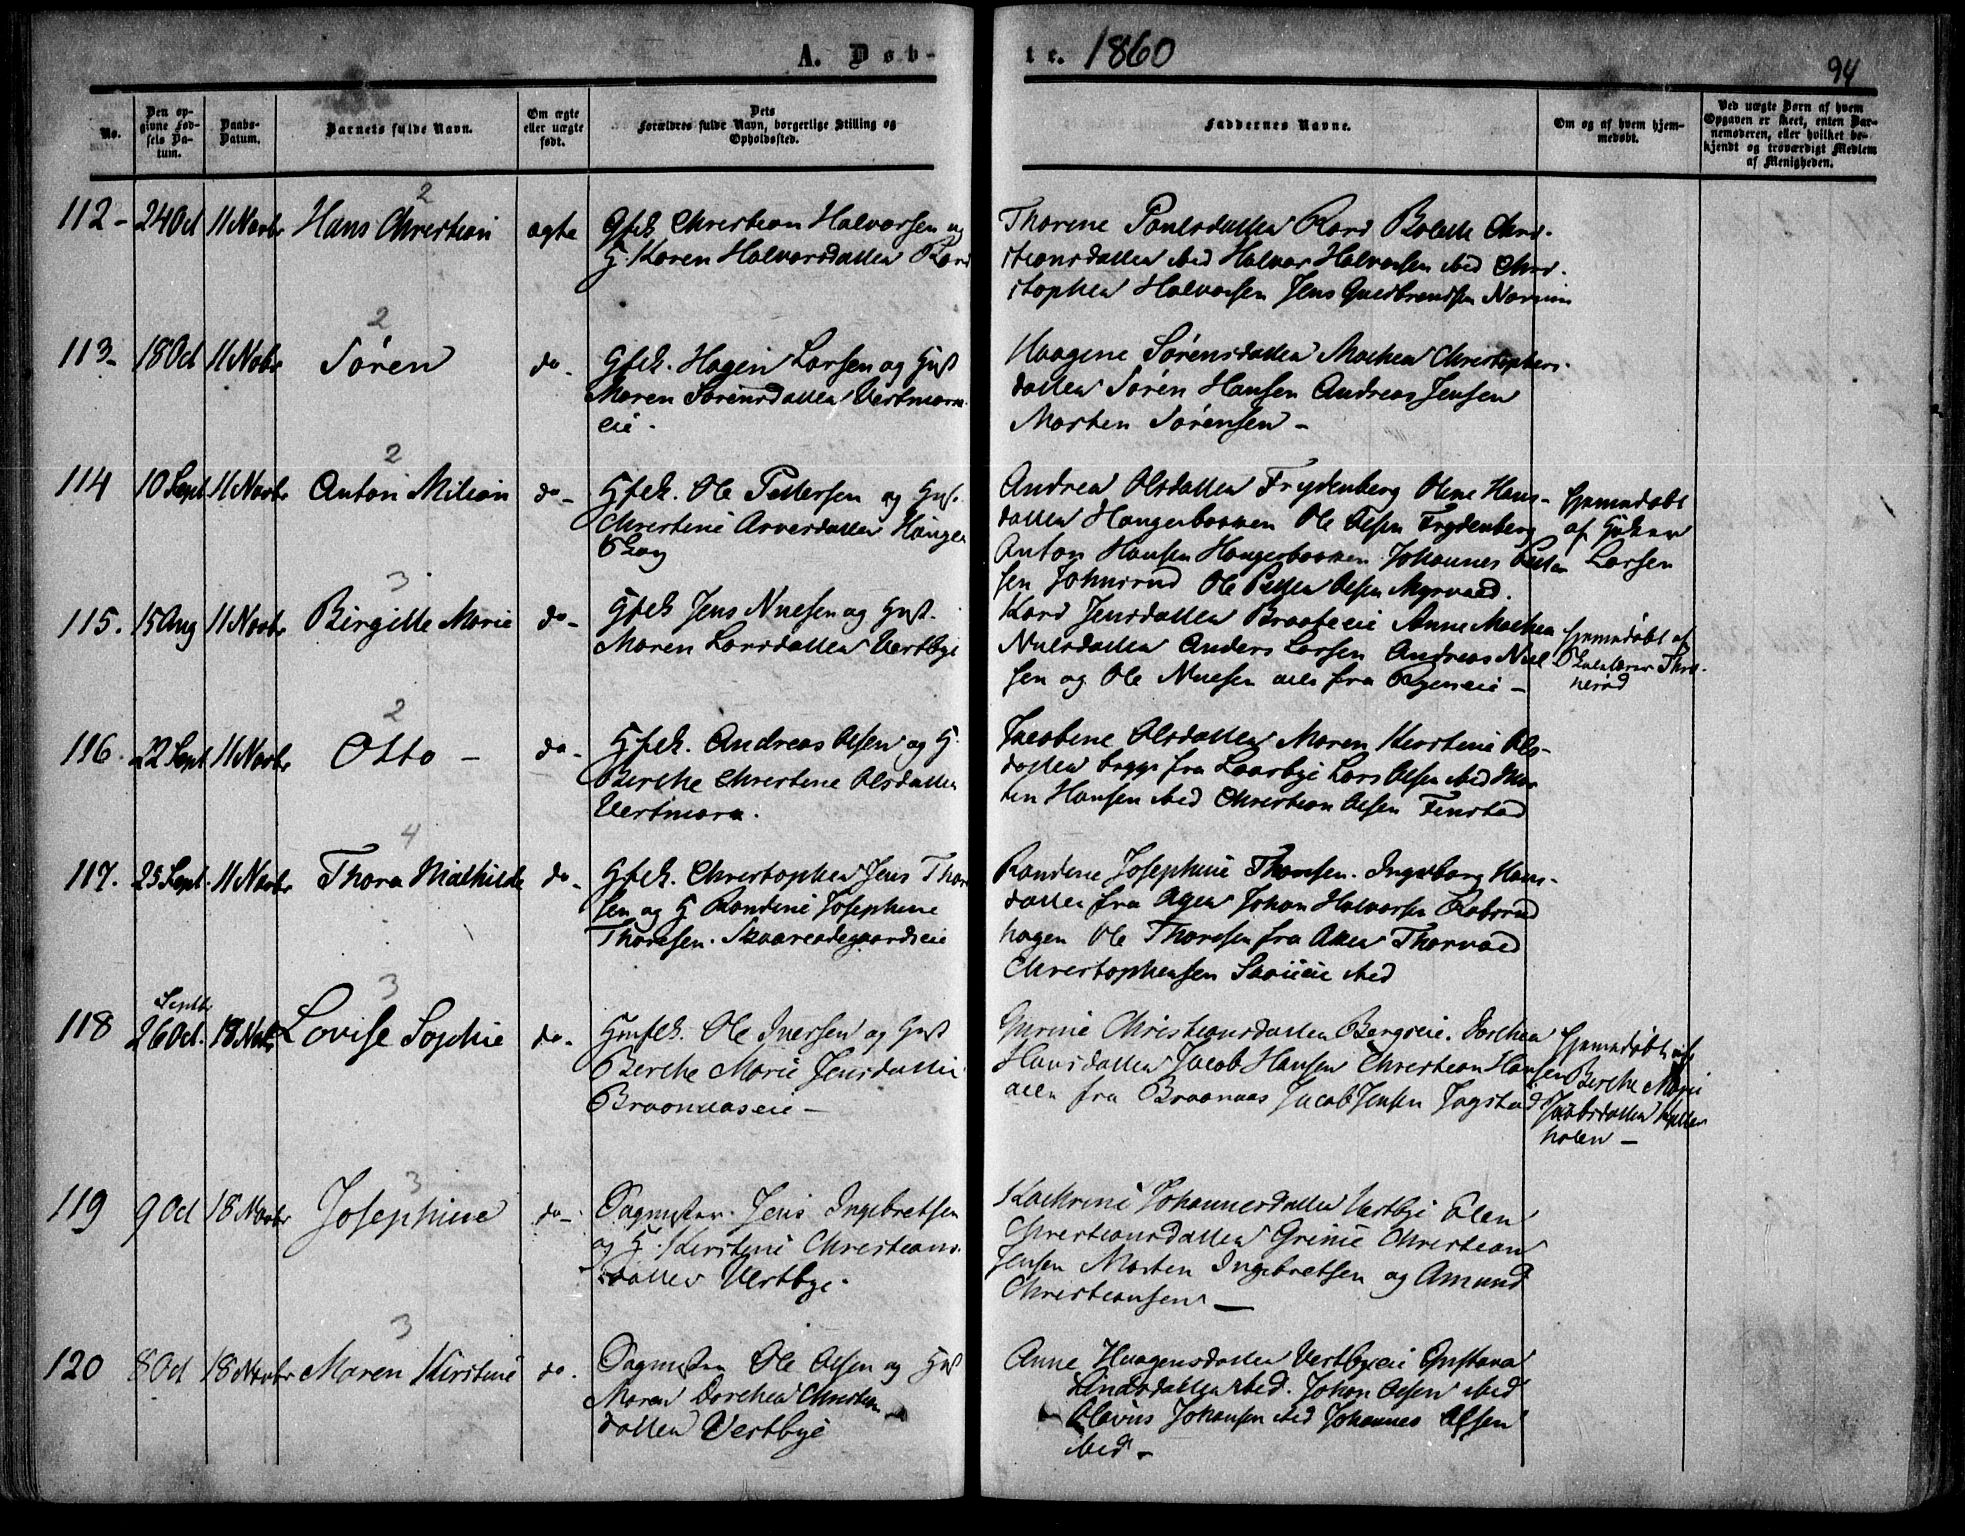 A. Døb-
te. 1860
94
No.
Den op-
givne Fød-
sels Da-
tum.
Daabs-
Datum.
Barnets fulde Navn.
Om ægte
eller uægte
født.
Dets
Forældres fulde Navn, borgerlige Stilling og
Opholdssted.
Faddernes Navne.
Om og af hvem hjem-
medøbt.
Ved uægte Børn af hvem
Opgaven er skeet, enten Bar-
nemoderen, eller hvilket be-
kjendt og troværdigt Medlem
af Menigheden.
2
112- 24 Oct 11 Novbr Hans Christian ægte Gfek Christian Halvorsen og
G. Karen Halvorsdatter
Thorine Paulsdatter Bolette Chri-
stiansdatter ibid Halvor Halvorsen ibid Chri-
stopher Halvorsen Jens Gulbrandsen
2
113- 18 Oct 11 Novbr Søren do- Gfek. Hagen Larsen og Hust
Maren Sørensdatter Vestmora
eie.
Haagene Sørensdatter Mathea Christophers-
datter Søren Hansen Andreas Jensen
Morten Sørensen -
2
114 10 Sept 11 Novbr Anton Milian do- Gfek. Ole Pettersen og Hus.
Christine Arvesdatter
Andrea Olsdatter Frydenberg Oline Hans-
datter Hangerbakken Ole Olsen Frydenberg
Anton Hansen Hangerbakken Johannes Petter
sen Ole Petter Olsen Myrvold.
Hjemmdøbt
af
Larsen
3
115. 15 Aug 11 Novbr Birgitte Marie do- Gfek Jens Nielsen og Hust.
Maren Larsdatter Vestbye
Kari Jensdatter Braateeie Anne Mathea
Nielsdatter Anders Larsen Andreas Niel
sen og Ole Nielsen alle fra
Hjemmdøbt af
2
116. 22 Sept 11 Novbr Otto - do- Gfek. Andreas Olsen og H.
Berthe Christine Olsdatter
Vestmora.
Jacobine Olsdatter Maren Kirstine Ols-
datter begge fra Laarbye Lars Olsen ibid Mor
ten Hansen ibid Christian Olsen Finstad
4
117. 25 Sept. 11 Novbr Thora Mathilde do- Gfek. Christopher Jens Thor
sen og H Randine Josephine
Thoresen. Skaareødegaardseie
Randine Josephine Thoresen. Ingeborg Hans-
datter fra Johan Halvorsen
hagen Ole Thoresen fra Aker Thorvald
Christophersen ibid
3
Septbr
118 26 Oct. 18 Novbr Lovise Sophie do- Hmfek. Ole Iversen og Hust
Berthe Marie Jensdatter
Braanaaseie -
Gurine Christiansdatter Bergseie. Dorthea
Hansdatter Jacob Hansen Christian Hansen
alle fra Braanaas Jacob Jensen Fagstad
Hjemmdøbt af
Berthe Marie
Jacobsdatter
holen -
3
119 9 Oct 18 Novbr Josephine do- Dagmstr. Jens Ingebretsen
og H. Kirstine Christians-
datter Vestbye.
Kathrine Johannesdatter Vestbye Elen
Christiansdatter Grinie Christian
Jensen Morten Ingebretsen og Amund
Christiansen -
3
120 8 Oct 18 Novbr Maren Kirstine do. Dagmstr Ole Olsen og Hust
Maren Dorthea Christian
datter Vestbye
Anne Haagensdatter Vestbyeie Gustava
Lindsdatter ibid. Johan Olsen ibid
Olavus Johansen ibid Johannes Olsen
ibid -